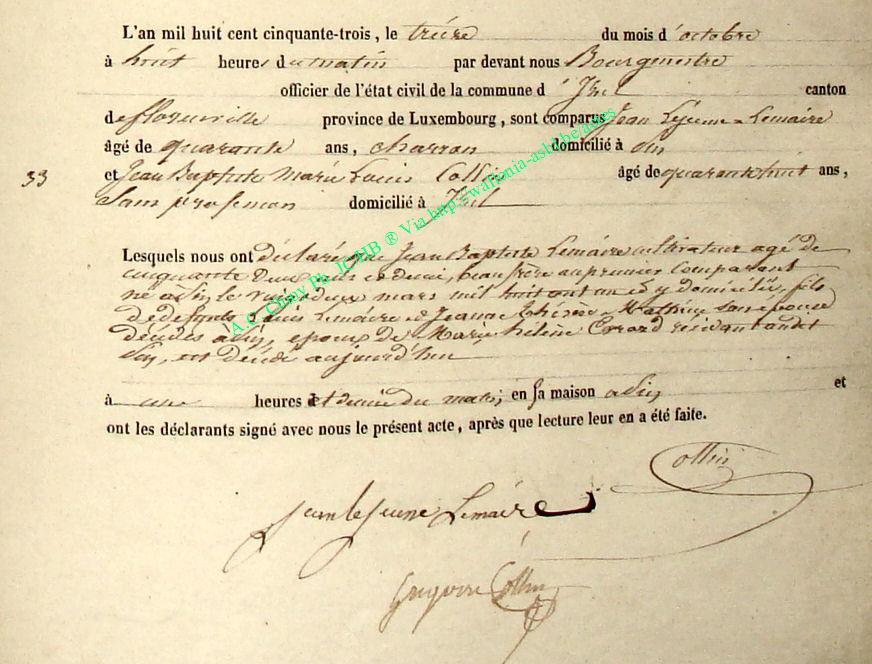 L'an mil huit cent cinquante-trois, le treize du mois d'octobre
à huit heures du matin par devant nous Bourgmestre
officier de l'état civil de la commune d' Izel canton
de florenville province de Luxembourg, sont comparus Jean Lejeune Lemaire
âgé de quarante ans, charron domicilié à
33
et Jean Baptiste Marie Louis Collin âgé de quarante huit ans,
Sans profession domicilié à Izel
Lesquels nous ont déclaré que Jean Baptiste Lemaire cultivateur agé de
cinquante Deux ans et demi, beau frère au premier comparant
né à le mars mil huit cent un et y domicilié, fils
de defunts Louis Lemaire et Jeanne Mathieu son épouse
décédés à époux de Marie hélène Errard residant audit
est décédé aujourd'hui
à une heures et demie du matin, en sa maison a et
ont les déclarants signé avec nous le présent acte, après que lecture leur en a été faite.
Collin
Jean lejeune Lemaire
Gregoire Collin
A.G. Chiny Ph. JCHB ® Via http://wallonia-asbl.be/actes